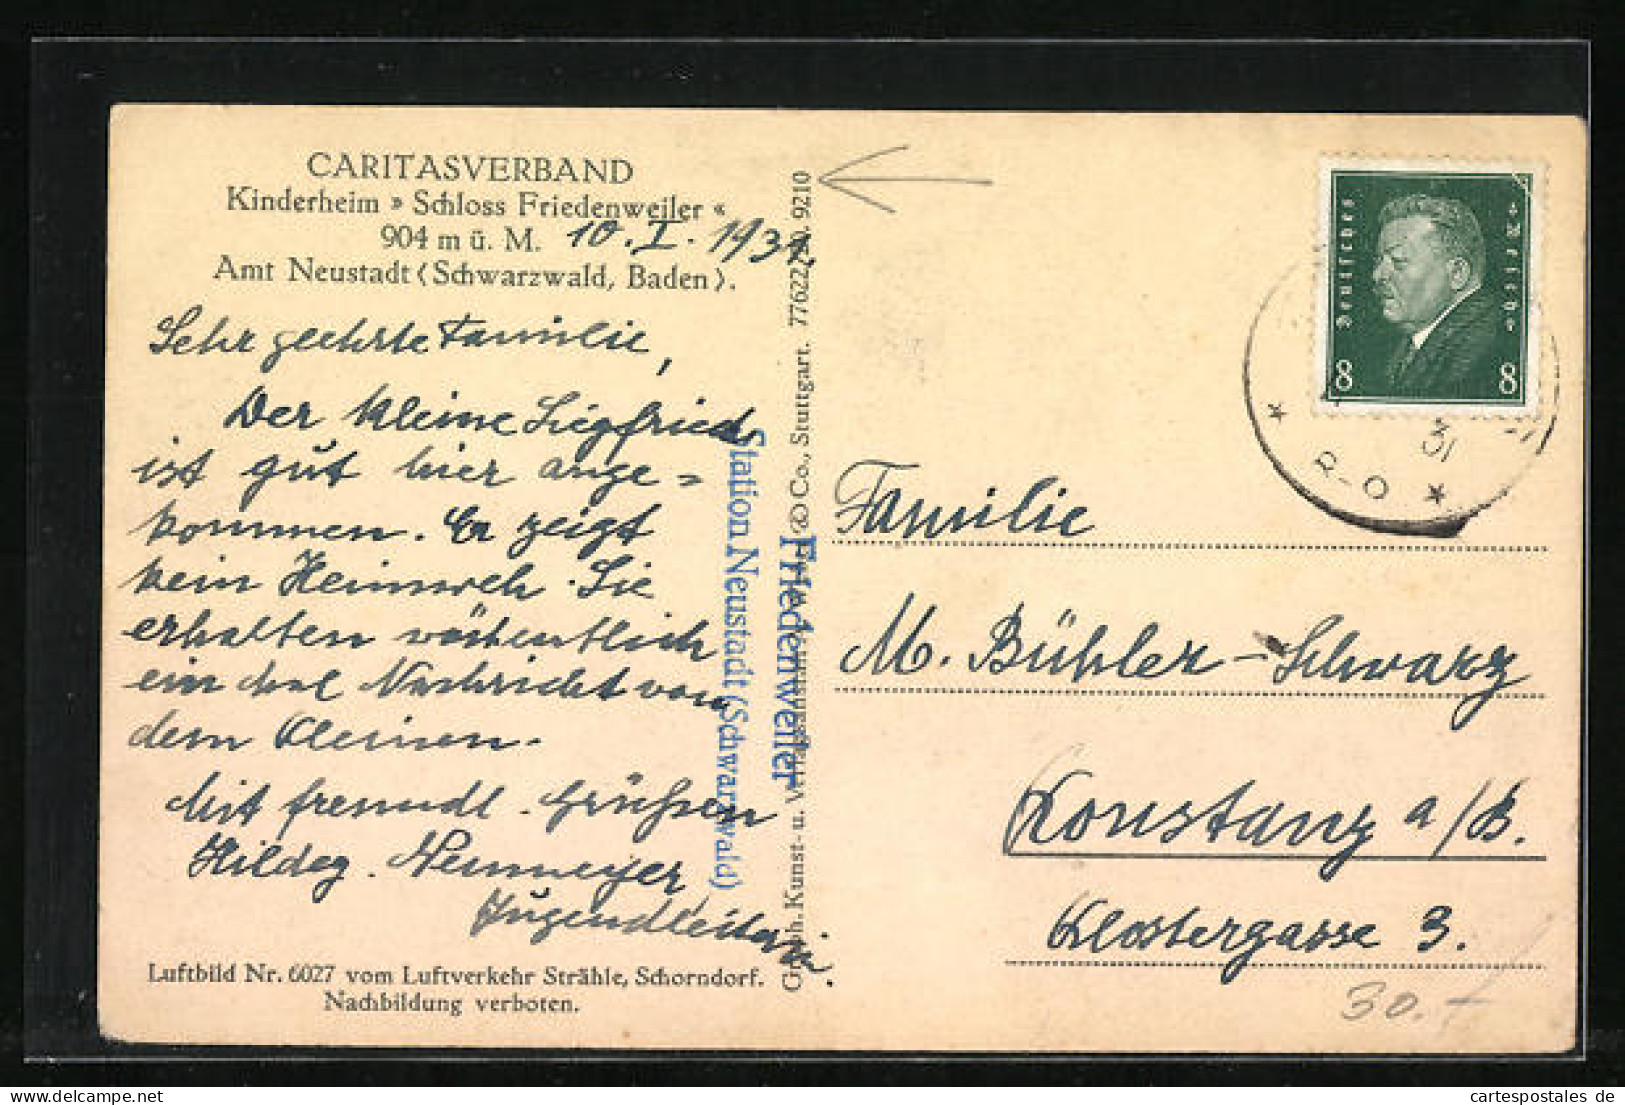 CARITASVERBAND
Kinderheim » Schloss Friedenweiler «
904 m ü. M. 10. I. 1931.
Amt Neustadt (Schwarzwald, Baden).
Sehr geehrte Familie,
Der kleine Siegfried
ist gut hier ange=
kommen. Er zeigt
kein Heimweh. Sie
erhalten wöchentlich
ein mal Nachricht von
dem Kleinen.
Mit freundl. Grüßen
Hildeg. Neumeyer
Jugendleiterin.
Luftbild Nr. 6027 vom Luftverkehr Strähle, Schorndorf.
Nachbildung verboten.
Station Neustadt (Schwarzwald)
Friedenweiler
Graph. Kunst- u. Verlagsanstalt & Co., Stuttgart. 77622 9210
Deutsches Reich
8 8
31
R-O
Familie
M. Bühler-Schwarz
Konstanz a/B.
Klostergasse 3.
30.-
www.cartespostales.de